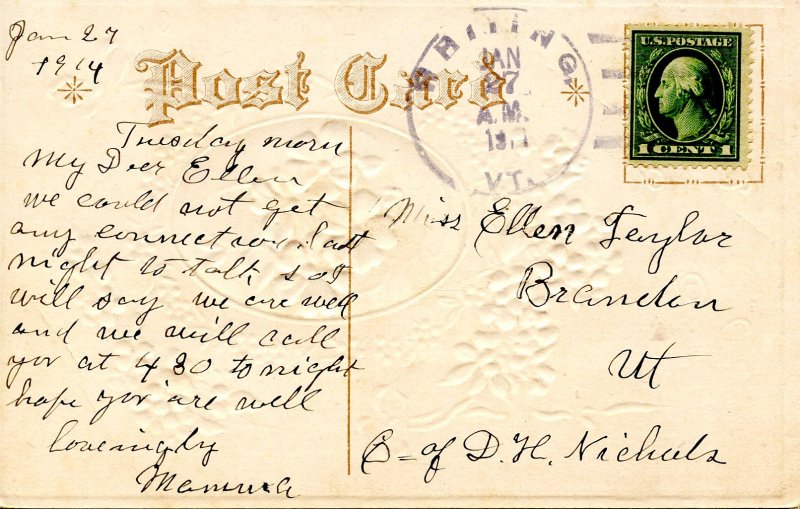 Jan 27
1914
Post Card
JAN
27
A.M.
VT.
U.S. POSTAGE
1 CENT 1
Tuesday morn
My Dear Ellen
we could not get
any connection last
night to talk so I
will say we are well
and we will call
yor at 430 to night
hope yor are well
loveingly
Mamma
Miss Ellen Taylor
Brandon
Vt
C= of D. H. Nichols